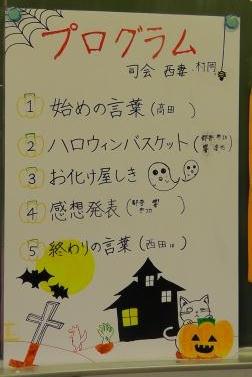 プログラム
司会 西妻 村岡
1 始めの言葉(高田)
2 ハロウィンバスケット(
3 お化け屋しき
4 感想発表(
5 終わりの言葉(西田